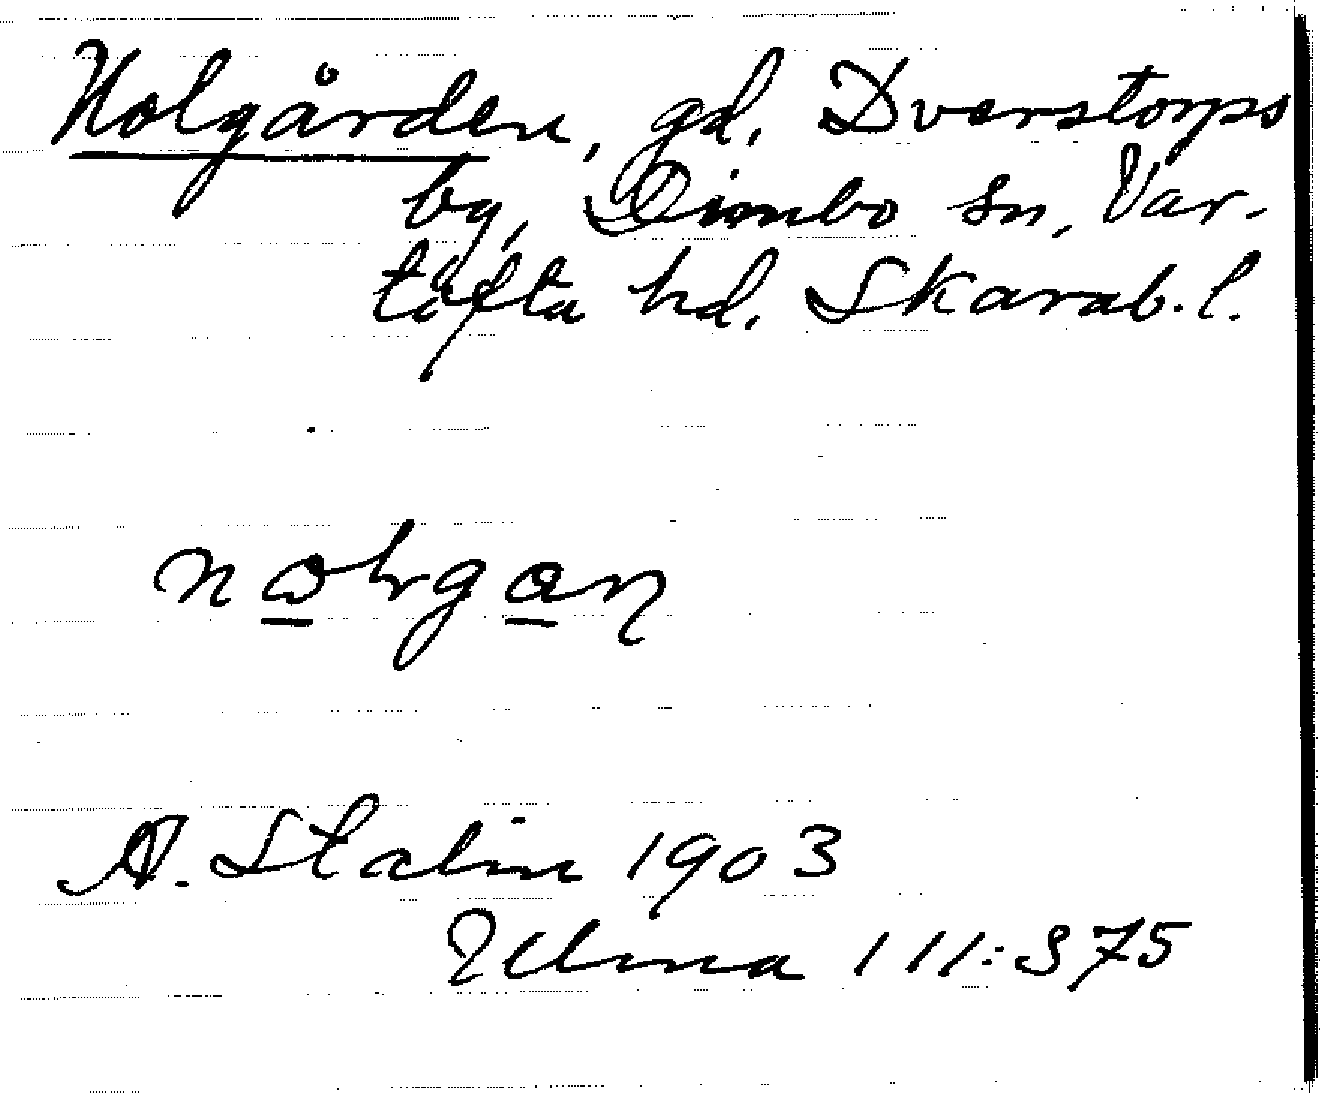 Nolgården, gd. Dverstorps
by, Dimbo sn, Var-
tofta hd. Skarab. l.
A. Stalin 1903
Ulma 111:375